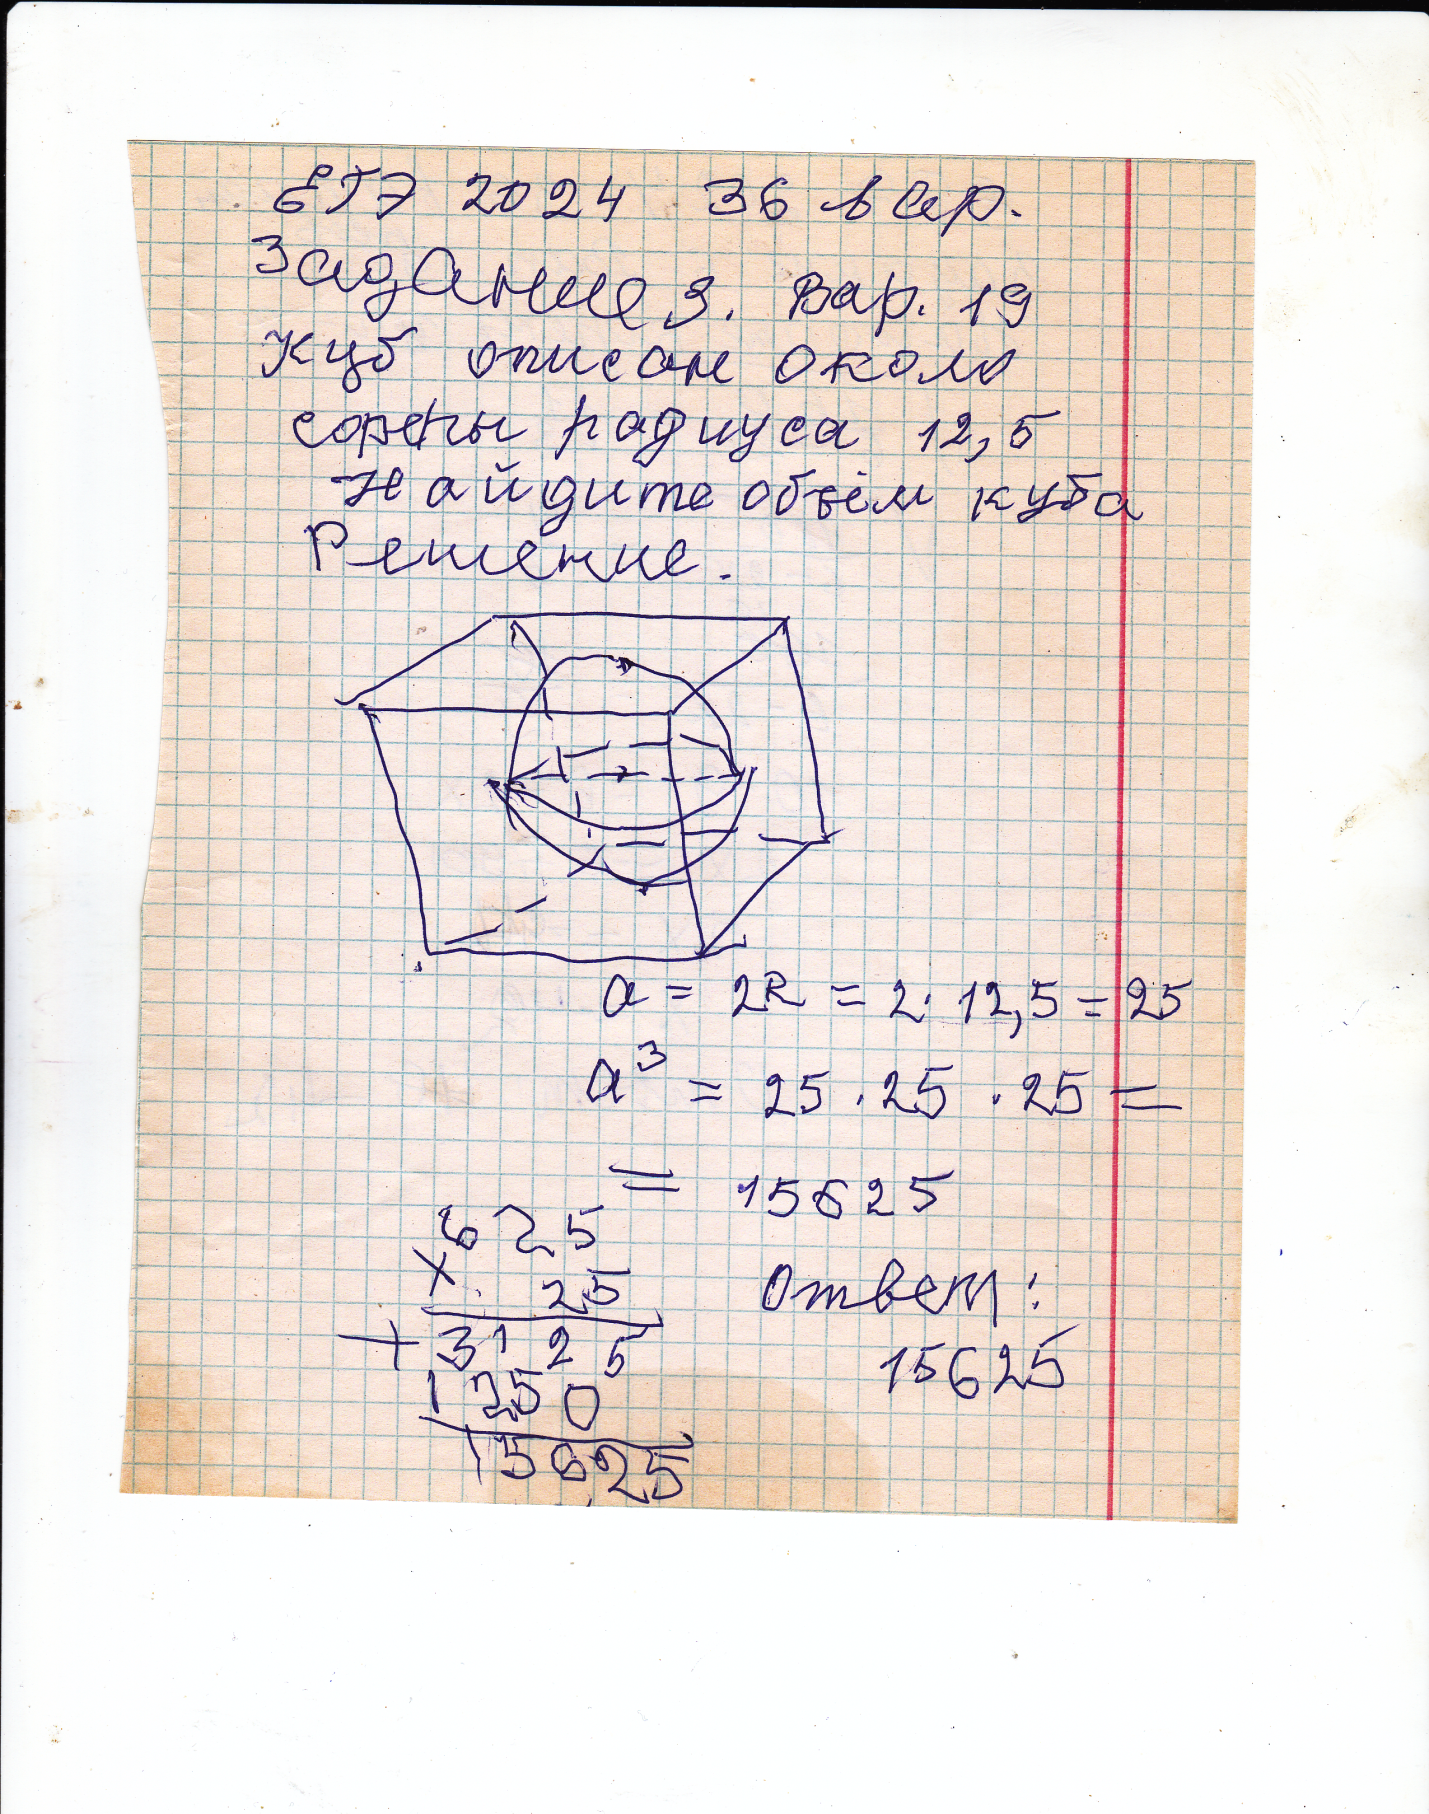 ЕГЭ 2024 36 вар.
Задание 3. Вар. 19
Куб описан около
сферы радиуса 12,5
Найдите объём куба
Решение.
a = 2R = 2 · 12,5 = 25
a³ = 25 · 25 · 25 =
= 15625
625
× 25
+ 3125
1250
15625
Ответ:
15625